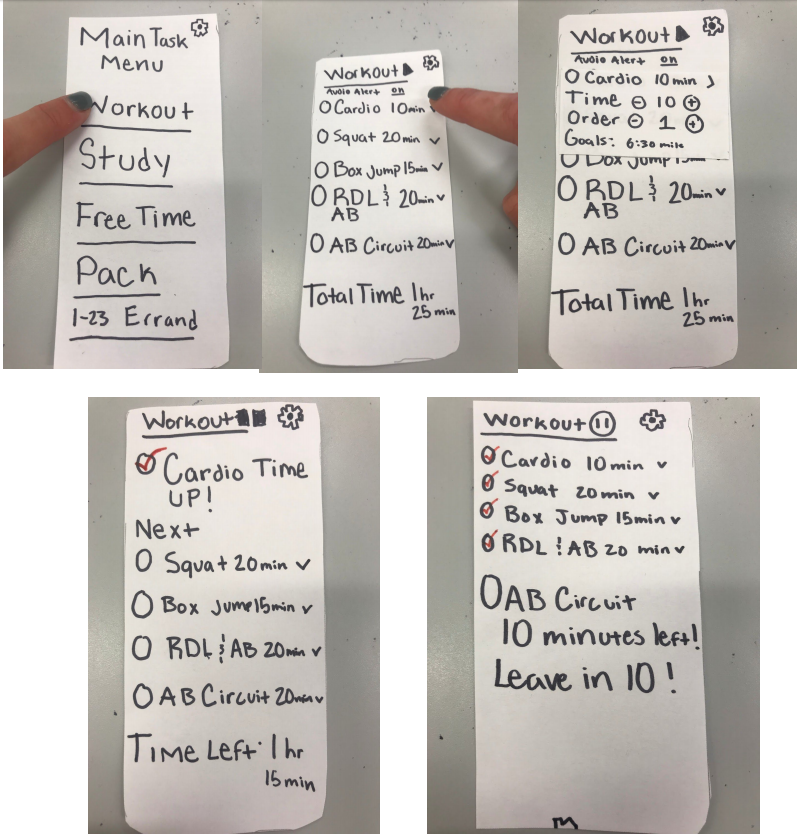 Main Task
Menu
Workout
Study
Free Time
Pack
1-23 Errand
Workout
Audio Alert on
Cardio 10min
Squat 20min
Box Jump 15min
RDL & 20min
AB
AB Circuit 20min
Total Time 1hr
25 min
Workout
Audio Alert on
Cardio 10 min
Time - 10 +
Order - 1 +
Goals: 6:30 mile
Box Jump 15min
RDL & 20min
AB
AB Circuit 20min
Total Time 1hr
25 min
Workout
Cardio Time
UP!
Next
Squat 20min
Box Jump 15min
RDL & AB 20min
AB Circuit 20min
Time Left: 1 hr
15 min
Workout
Cardio 10 min
Squat 20min
Box Jump 15min
RDL & AB 20 min
AB Circuit
10 minutes left!
Leave in 10!